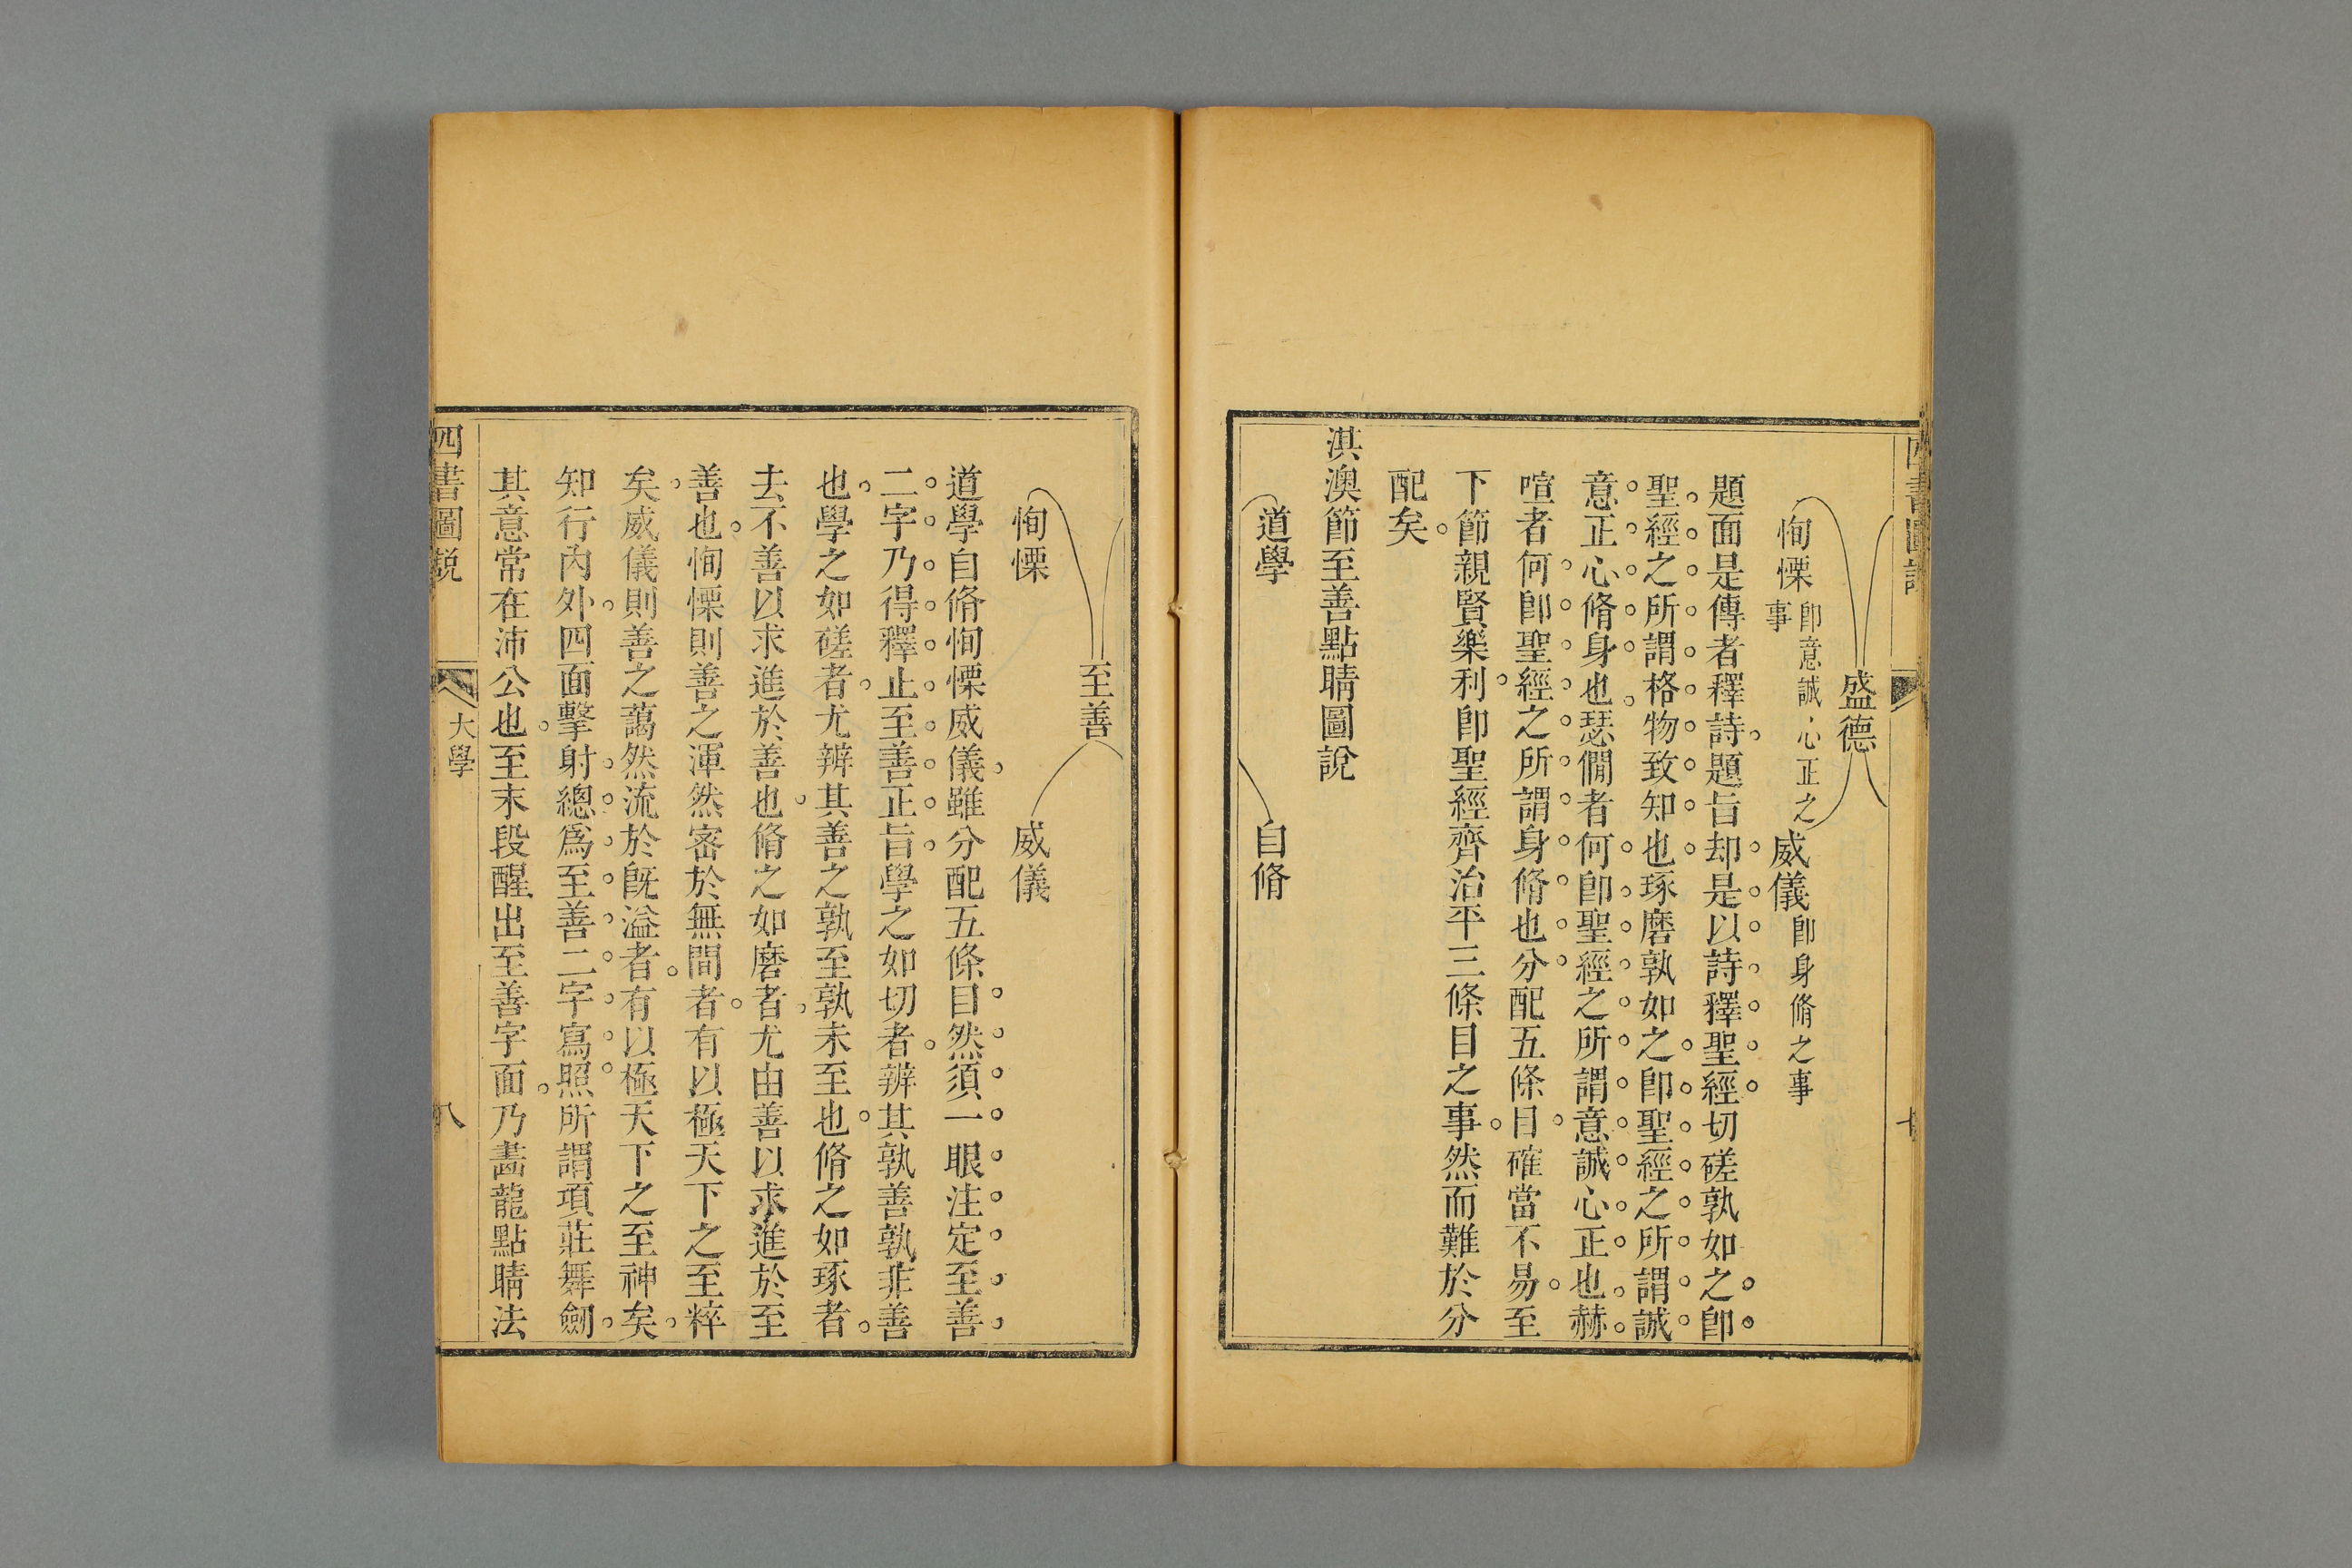 四書圖說
七
盛德
恂慄 卽意誠心正之
事
威儀 卽身脩之事
題面是傳者釋詩題旨却是以詩釋聖經切磋孰如之卽
聖經之所謂格物致知也琢磨孰如之卽聖經之所謂誠
意正心脩身也瑟僩者何卽聖經之所謂意誠心正也赫
喧者何卽聖經之所謂身脩也分配五條目確當不易至
下節親賢樂利卽聖經齊治平三條目之事然而難於分
配矣
淇澳節至善點睛圖說
道學
自脩
至善
恂慄
威儀
道學自脩恂慄威儀雖分配五條目然須一眼注定至善
二字乃得釋止至善正旨學之如切者辨其孰善孰非善
也學之如磋者尤辨其善之孰至孰未至也脩之如琢者
去不善以求進於善也脩之如磨者尤由善以求進於至
善也恂慄則善之渾然密於無間者有以極天下之至粹
矣威儀則善之藹然流於旣溢者有以極天下之至神矣
知行內外四面擊射總爲至善二字寫照所謂項莊舞劒
其意常在沛公也至末段醒出至善字面乃畵龍點睛法
四書圖說
大學
八